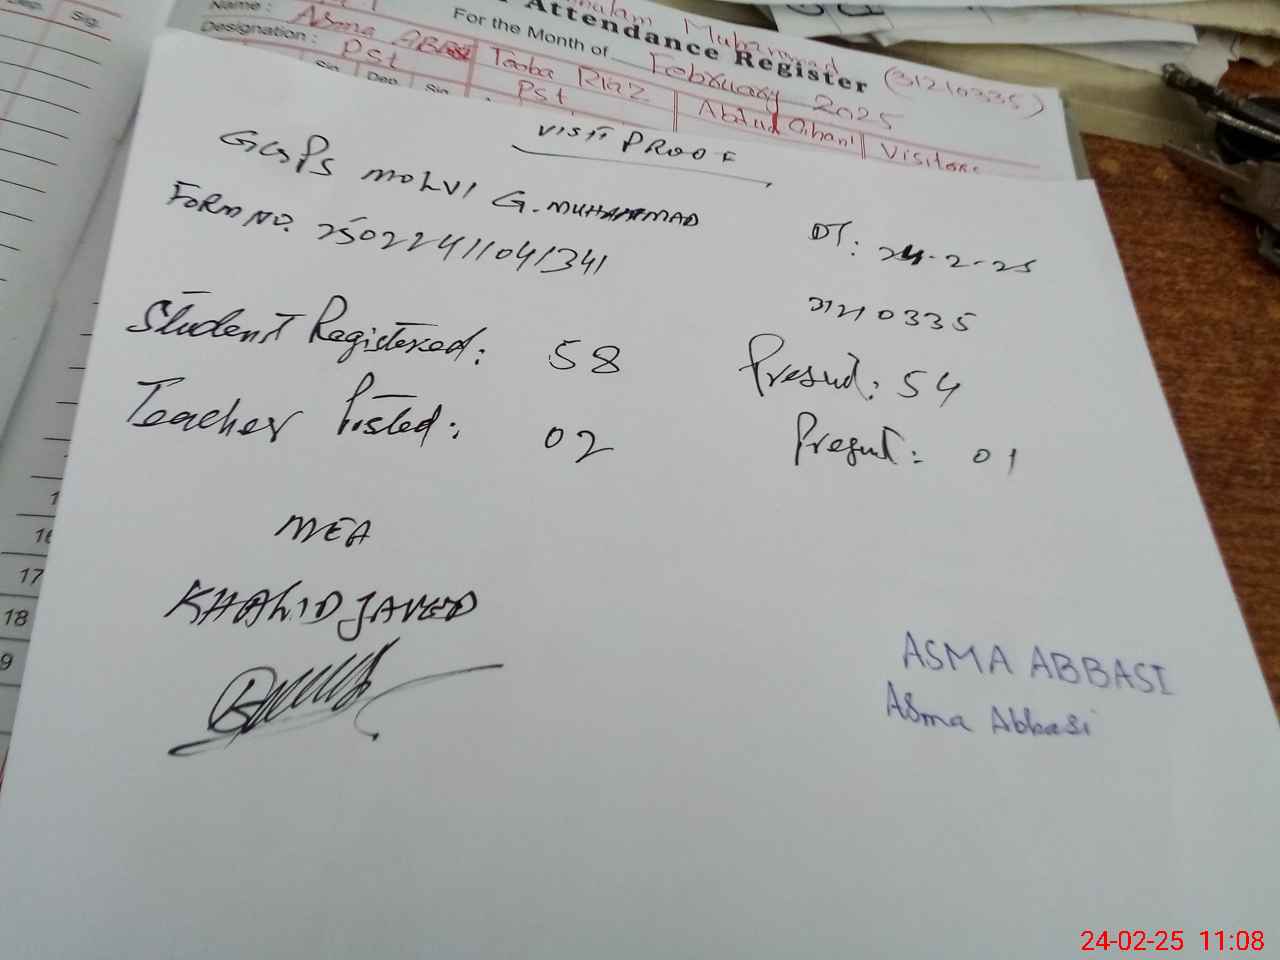 Dep. Sig.
Mubarmad
Attendance Register (31210335)
Name : Asma Abbasi Tooba Riaz Abdul Ghani Visitors
For the Month of February 2025
Designation : Pst Pst
Sig. Dep. Sig.
VISIT PROOF
GGPS MOLVI G. MUHAMMAD DT: 24-2-25
FORM NO. 25022411041341 31210335
Student Registered: 58 Present: 54
Teacher Posted: 02 Present: 01
MEA
KHALID JAVED
ASMA ABBASI
Asma Abbasi
16
17
18
9
24-02-25 11:08